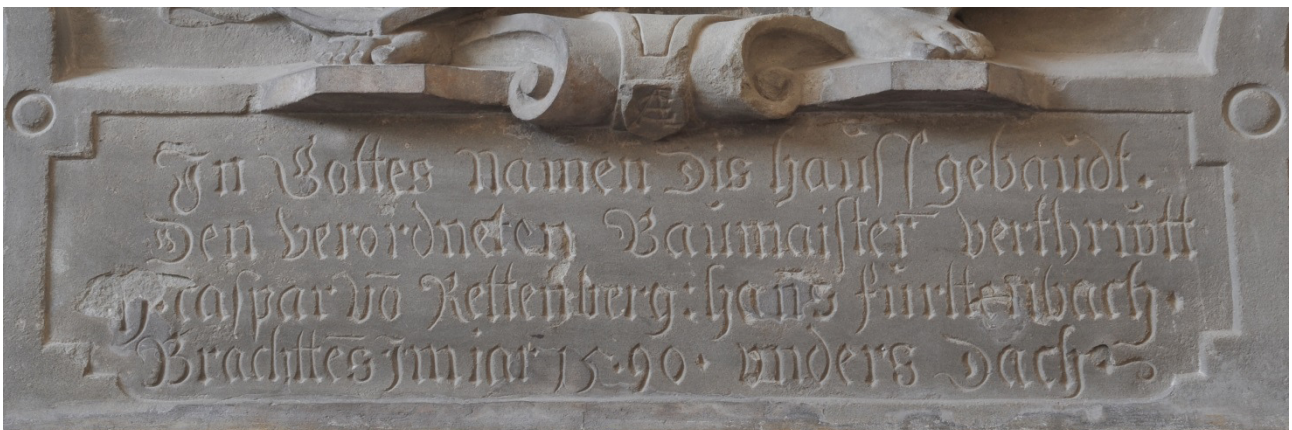 In Gottes Namen Dis hauſſ gebaudt.
Den verordneten Baumaiſter verthruͦtt
H. caſpar vō Rettenberg: hans fürttenbach.
Brachttēs Im iar 15.90. unders Dach